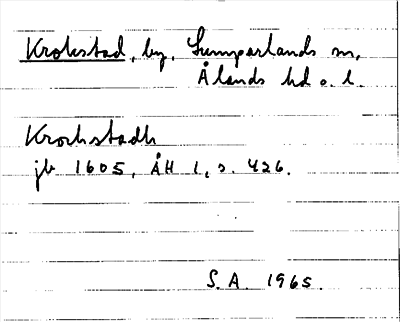 Krokstad, by, Lumparlands sn,
Ålands hd o. l.
Krockstadh
jb 1605, ÅH 1, s. 426.
S.A. 1965.